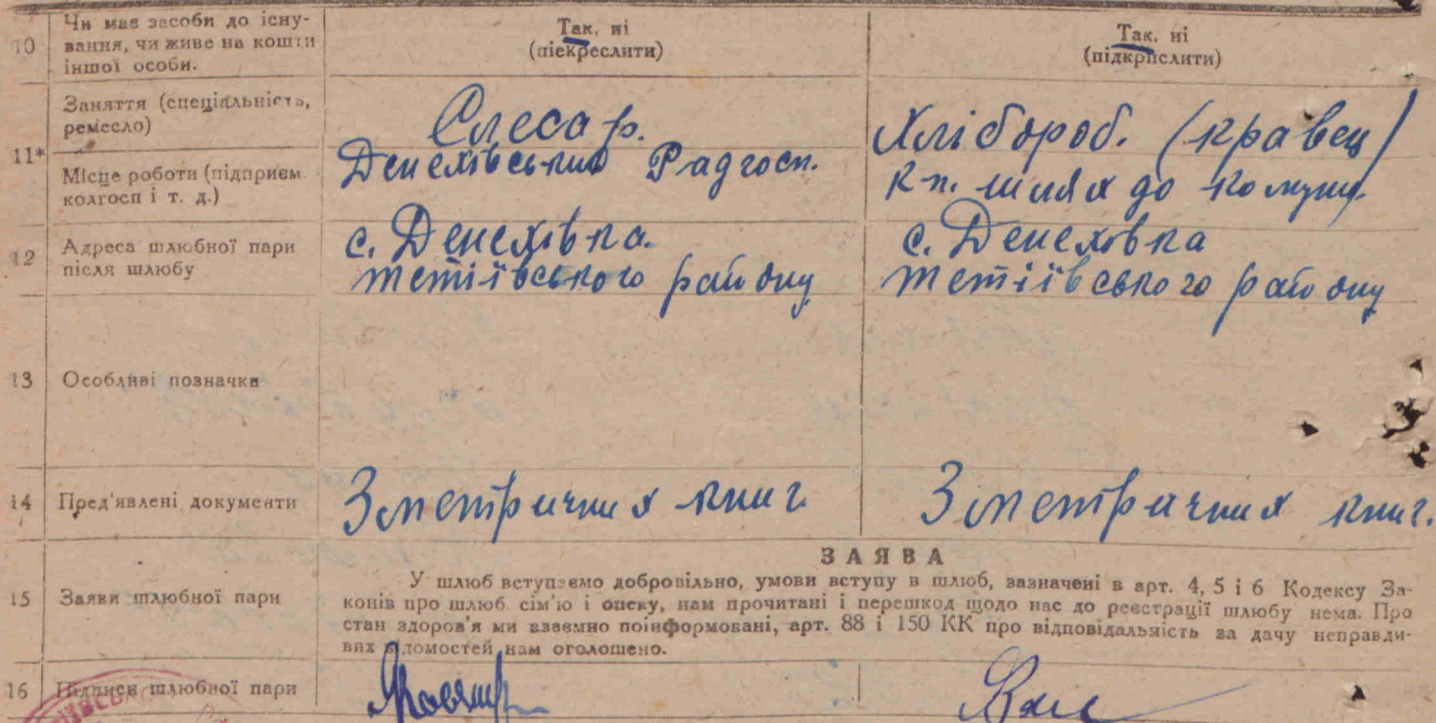 10 Чи має засоби до існу-
вання, чи живе на кошти
іншої особи.
Так, ні
(піекреслити)
Так, ні
(підкрпслити)
11*
Заняття (спеціяльність,
ремесло)
Слесар.
Хлібороб. (кравец)
Місце роботи (підприєм.
колгосп і т. д.)
Денехівський Радгосп.
К-п. шлях до комуни
12 Адреса шлюбної пари
після шлюбу
с. Денехівка.
тетіївського району
с. Денехівка
тетіївського району
13 Особливі позначки
14 Пред'явлені документи
З метричних книг.
З метричних книг.
15 Заяви шлюбної пари
ЗАЯВА
У шлюб вступаємо добровільно, умови вступу в шлюб, зазначені в арт. 4, 5 і 6 Кодексу За-
конів про шлюб. сім'ю і опеку, нам прочитані і перешкод щодо нас до реєстрації шлюбу нема. Про
стан здоров'я ми взаємно поінформовані, арт. 88 і 150 КК про відповідальність за дачу неправди-
вих відомостей нам оголошено.
16 Підписи шлюбної пари